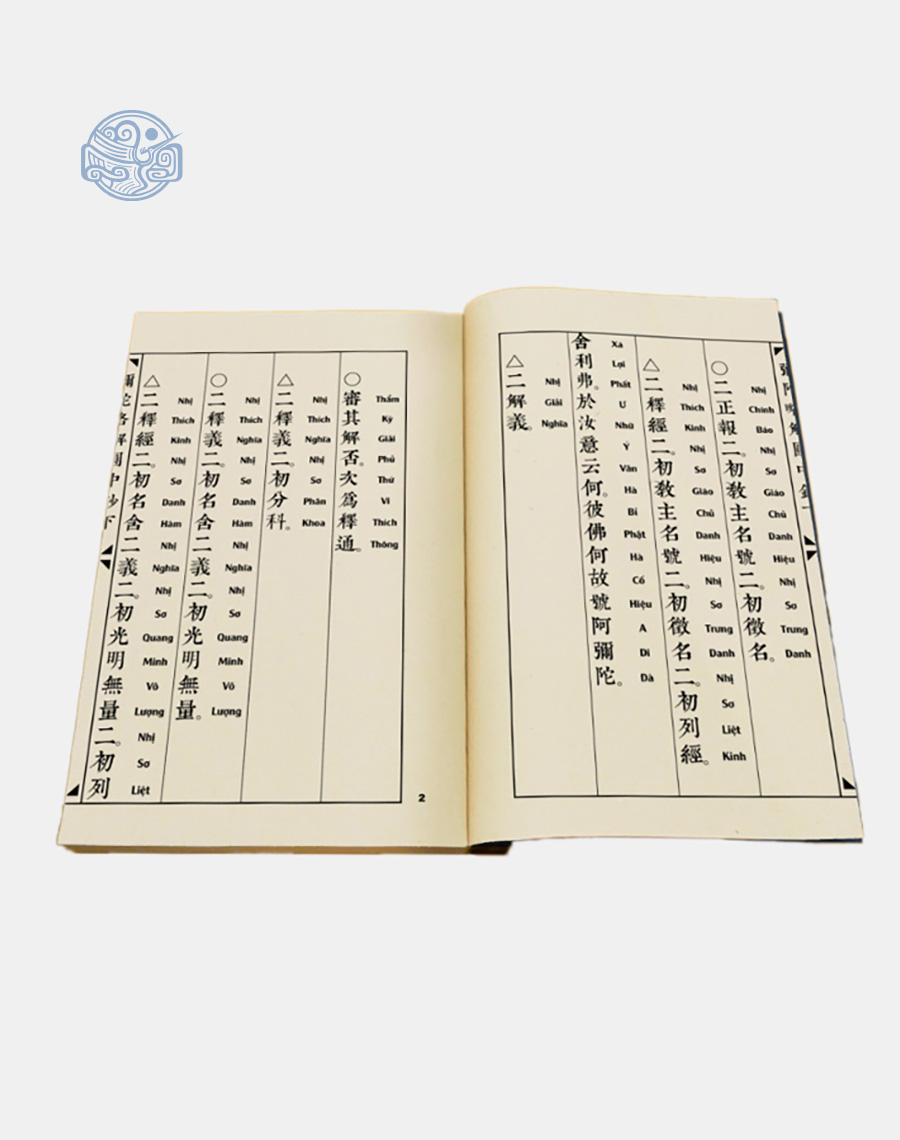 ○二正報二。初敎主名號二。初徵名。
Nhị Chính Báo Nhị Sơ Giáo Chủ Danh Hiệu Nhị Sơ Trưng Danh
△二釋經二。初敎主名號二。初徵名二。初列經。
Nhị Thích Kinh Nhị Sơ Giáo Chủ Danh Hiệu Nhị Sơ Trưng Danh Nhị Sơ Liệt Kinh
舍利弗。於汝意云何。彼佛何故號阿彌陀。
Xá Lợi Phất Ư Nhữ Ý Vân Hà Bỉ Phật Hà Cố Hiệu A Di Đà
△二解義。
Nhị Giải Nghĩa
○審其解否。次爲釋通。
Thẩm Kỳ Giải Phủ Thứ Vi Thích Thông
△二釋義二。初分科。
Nhị Thích Nghĩa Nhị Sơ Phân Khoa
○二釋義二。初名舍二義二。初光明無量。
Nhị Thích Nghĩa Nhị Sơ Danh Hàm Nhị Nghĩa Nhị Sơ Quang Minh Vô Lượng
△二釋經二。初名舍二義二。初光明無量二。初列
Nhị Thích Kinh Nhị Sơ Danh Hàm Nhị Nghĩa Nhị Sơ Quang Minh Vô Lượng Nhị Sơ Liệt
2